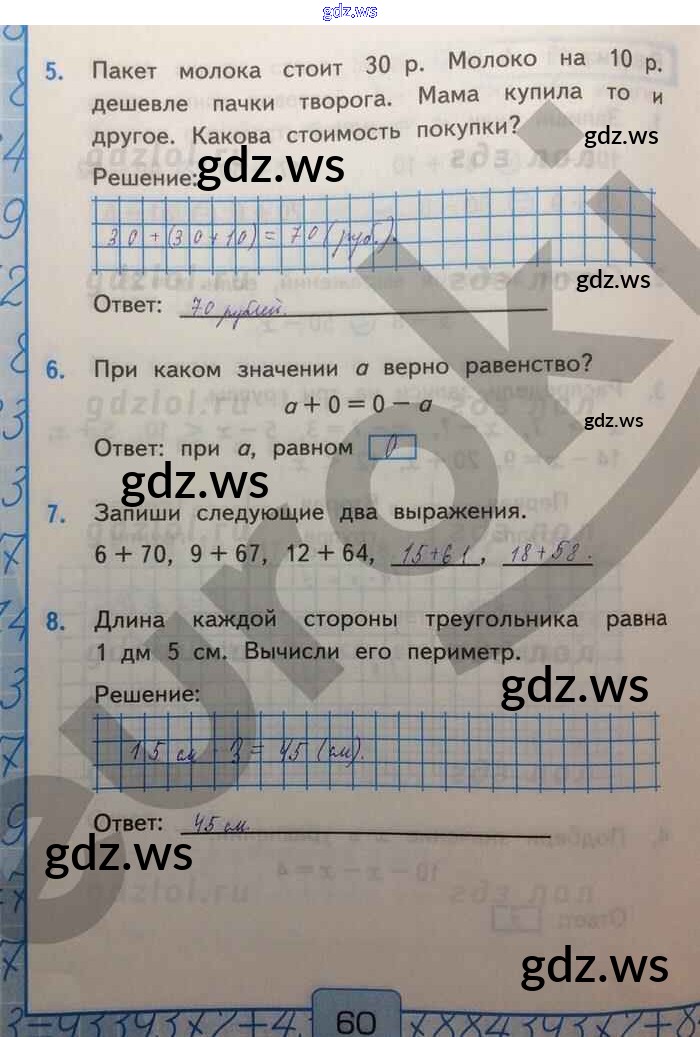 gdz.ws
5. Пакет молока стоит 30 р. Молоко на 10 р.
дешевле пачки творога. Мама купила то и
другое. Какова стоимость покупки?
gdz.ws
gdz.ws
Решение:
30 + (30 + 10) = 70 (руб.).
gdz.ws
Ответ: 70 рублей.
6. При каком значении a верно равенство?
a + 0 = 0 − a
gdz.ws
Ответ: при a, равном 0
gdz.ws
7. Запиши следующие два выражения.
6 + 70, 9 + 67, 12 + 64, 15+61, 18+58.
8. Длина каждой стороны треугольника равна
1 дм 5 см. Вычисли его периметр.
Решение:
gdz.ws
15 см · 3 = 45 (см).
Ответ: 45 см.
gdz.ws
gdz.ws
60
euroki